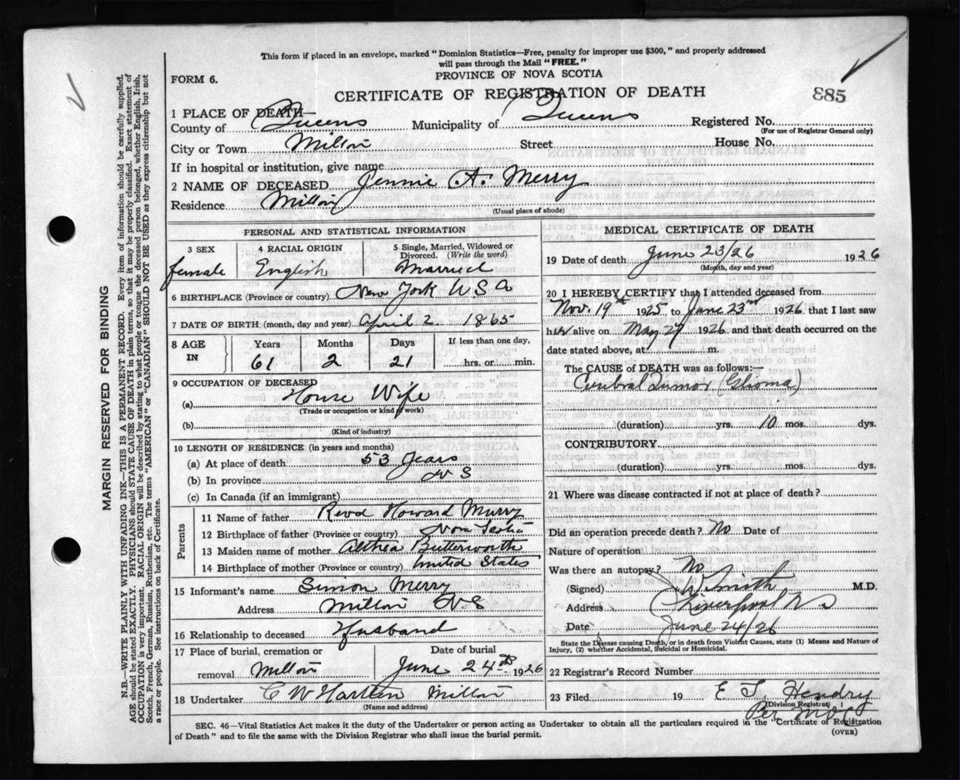 This form if placed in an envelope, marked "Dominion Statistics—Free, penalty for improper use $300," and properly addressed
will pass through the Mail "FREE."
PROVINCE OF NOVA SCOTIA
FORM 6.
CERTIFICATE OF REGISTRATION OF DEATH
885
1 PLACE OF DEATH
County of Queens Municipality of Queens Registered No.
(For use of Registrar General only)
City or Town Milton Street House No.
If in hospital or institution, give name
2 NAME OF DECEASED Jennie A. Merry
Residence Milton
(Usual place of abode)
PERSONAL AND STATISTICAL INFORMATION
3 SEX 4 RACIAL ORIGIN 5 Single, Married, Widowed or
Divorced. (Write the word)
female English Married
6 BIRTHPLACE (Province or country) New York USA
7 DATE OF BIRTH (month, day and year) April 2 1865
8 AGE IN Years Months Days If less than one day,
61 2 21 hrs. or min.
9 OCCUPATION OF DECEASED
(a) House Wife
(Trade or occupation or kind of work)
(b)
(Kind of industry)
10 LENGTH OF RESIDENCE (in years and months)
(a) At place of death 53 years
(b) In province N S
(c) In Canada (if an immigrant)
Parents
11 Name of father Howard Murry
12 Birthplace of father (Province or country) Nova Scotia
13 Maiden name of mother Althea Butterworth
14 Birthplace of mother (Province or country) United States
15 Informant's name Simon Merry
Address Milton NS
16 Relationship to deceased Husband
17 Place of burial, cremation or Date of burial
removal Milton June 24th 1926
18 Undertaker C W Harlen Milton
(Name and address)
MEDICAL CERTIFICATE OF DEATH
19 Date of death June 23/26 1926
(Month, day and year)
20 I HEREBY CERTIFY that I attended deceased from
Nov. 19th 1925 to June 23rd 1926 that I last saw
her alive on May 27 1926 and that death occurred on the
date stated above, at m.
The CAUSE of DEATH was as follows:
Cerebral Tumor (Glioma)
(duration) yrs. 10 mos. dys.
CONTRIBUTORY
(duration) yrs. mos. dys.
21 Where was disease contracted if not at place of death?
Did an operation precede death? No Date of
Nature of operation
Was there an autopsy? No
(Signed) Smith M.D.
Address Liverpool N S
Date June 24/26
State the Disease causing Death, or in death from Violent Causes, state (1) Means and Nature of
Injury, (2) whether Accidental, Suicidal or Homicidal.
22 Registrar's Record Number
23 Filed 19 E. T. Hendry
(Division Registrar)
Per
SEC. 46—Vital Statistics Act makes it the duty of the Undertaker or person acting as Undertaker to obtain all the particulars required in the "Certificate of Registration
of Death" and to file the same with the Division Registrar who shall issue the burial permit.
(OVER)
MARGIN RESERVED FOR BINDING
N.B.—WRITE PLAINLY WITH UNFADING INK—THIS IS A PERMANENT RECORD. Every item of information should be carefully supplied.
AGE should be stated EXACTLY. PHYSICIANS should STATE CAUSE OF DEATH in plain terms, so that it may be properly classified. Exact statement of
OCCUPATION is very important. RACIAL ORIGIN will be described by stating to what people or tongue the deceased person belonged, whether English, Irish,
Scotch, French, German, Russian, Ruthenian, etc. The terms "AMERICAN" "CANADIAN" SHOULD NOT BE USED as they express citizenship but not
a race or people. See instructions on back of Certificate.